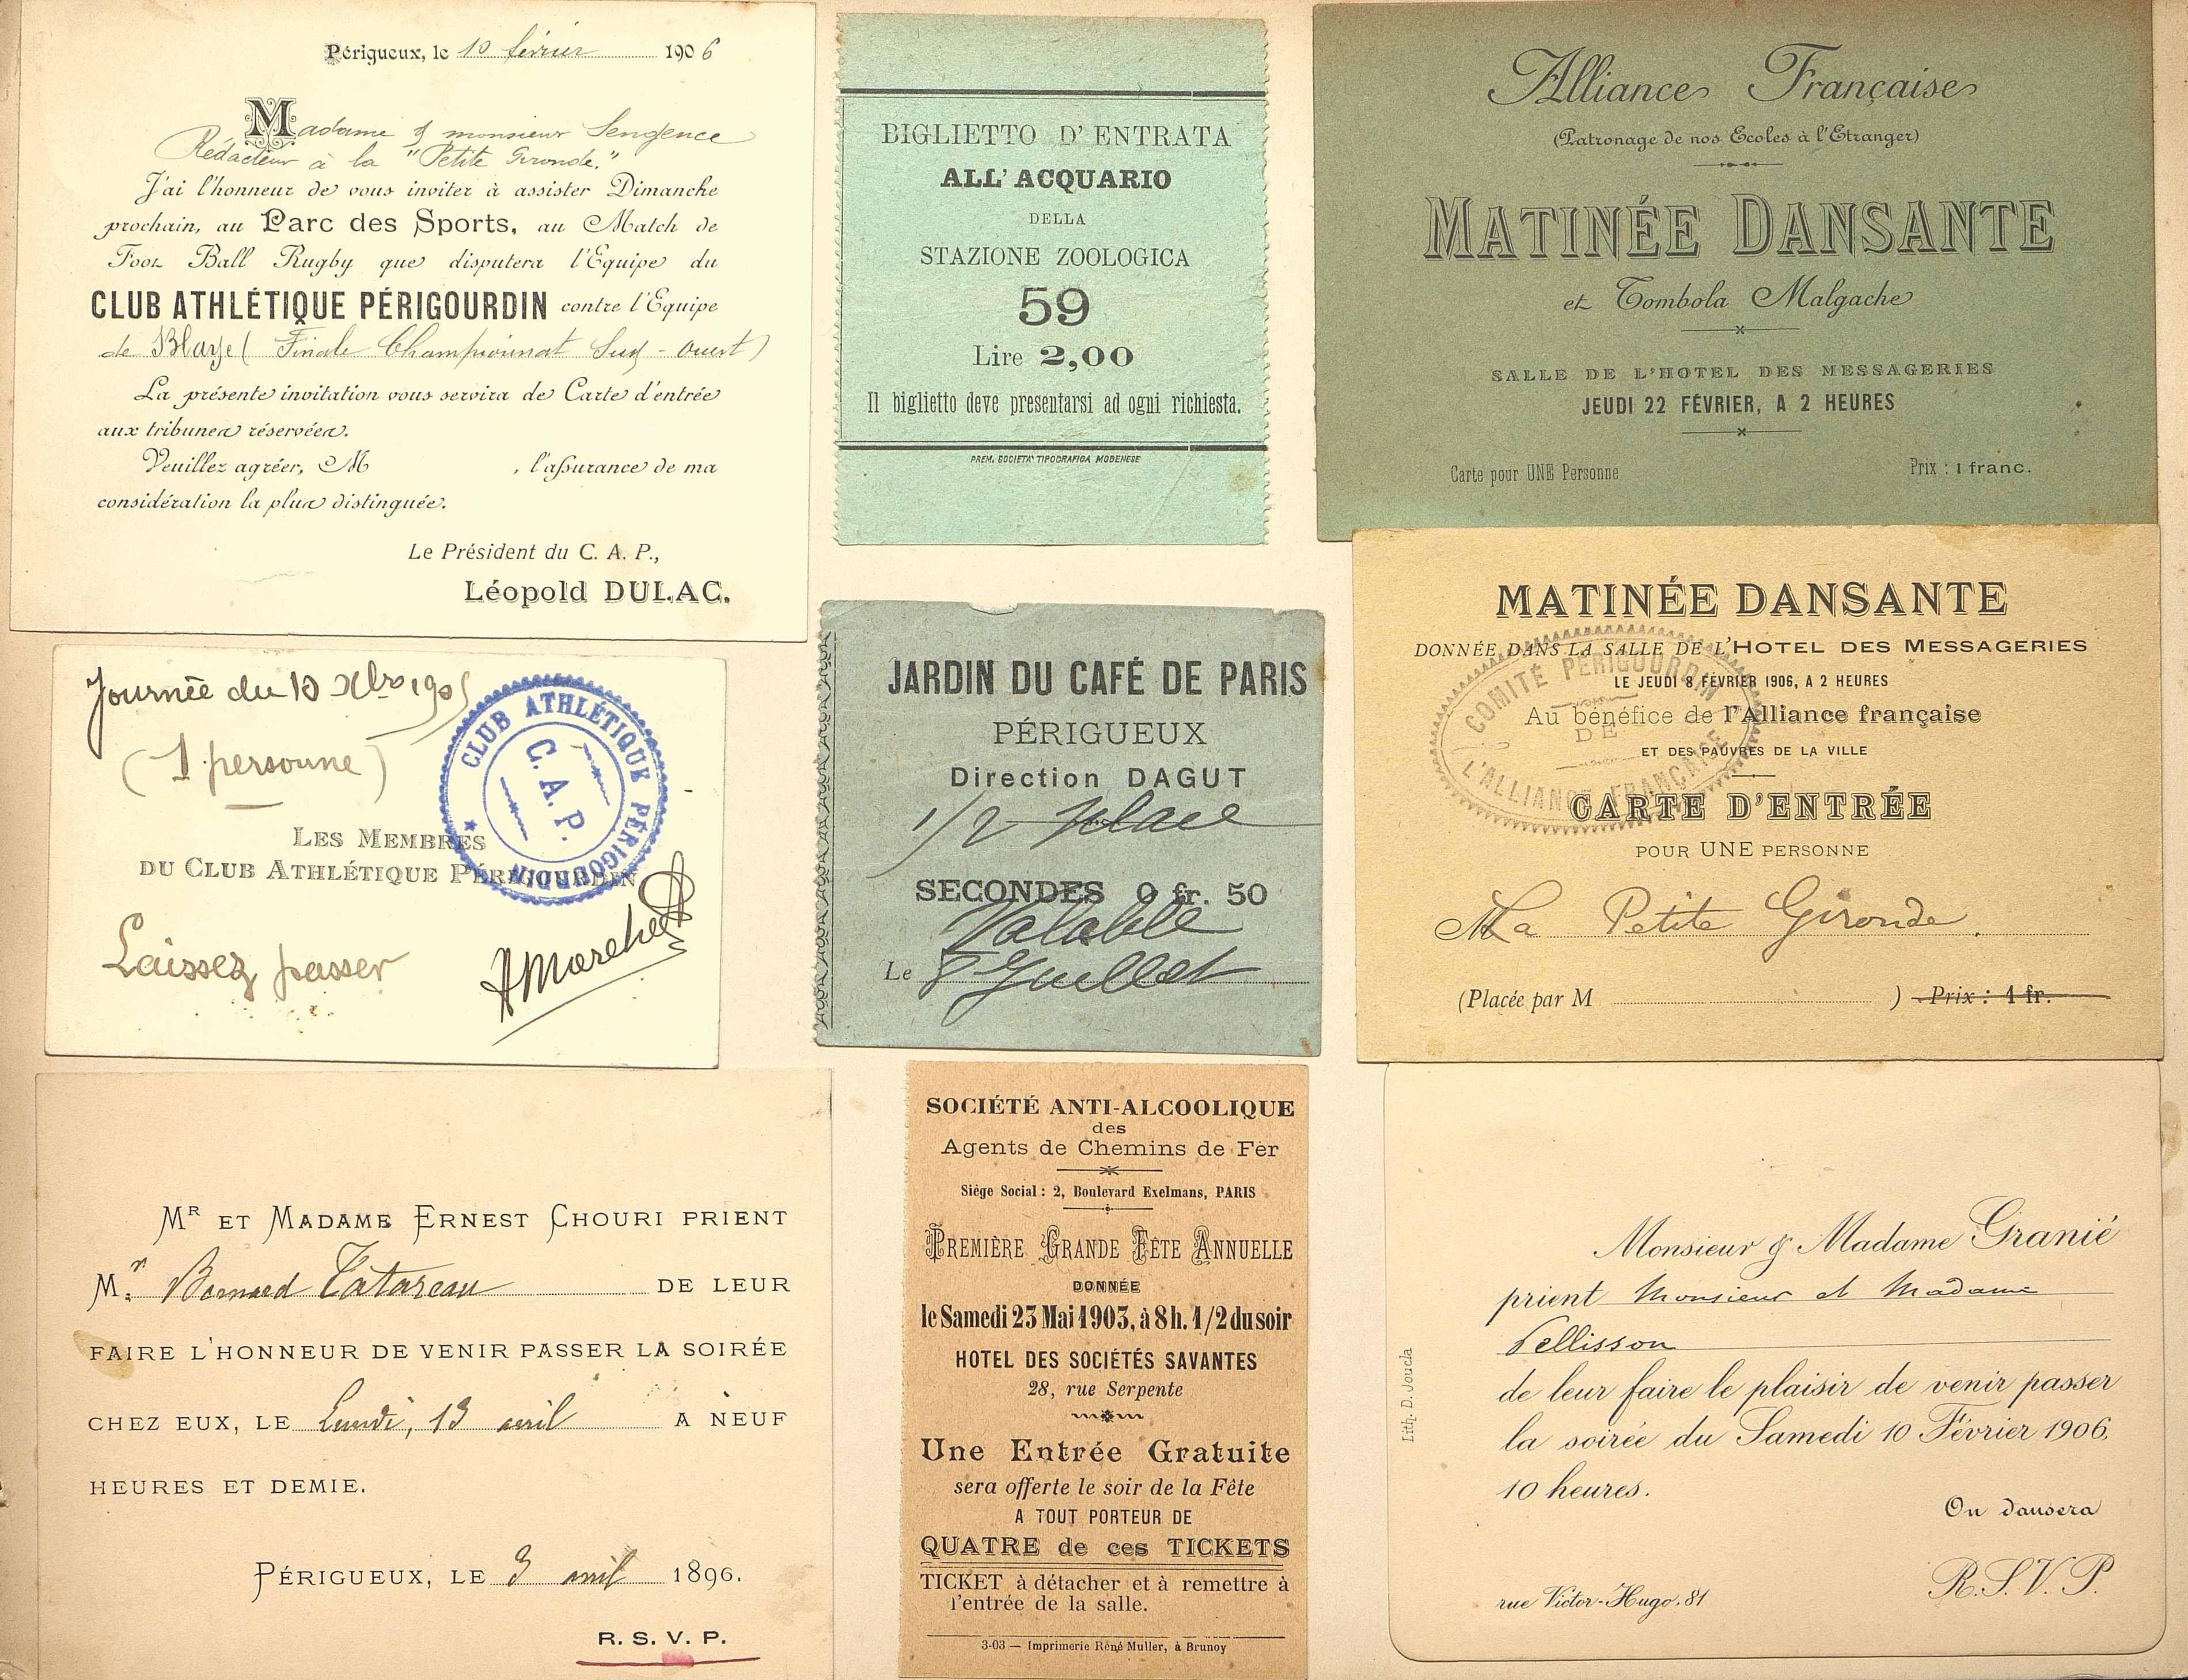 Périgueux, le 10 février 1906
Madame & monsieur Sengence
Rédacteur à la "Petite Gironde."
J'ai l'honneur de vous inviter à assister Dimanche
prochain, au Parc des Sports, au Match de
Foot Ball Rugby que disputera l'Equipe du
CLUB ATHLÉTIQUE PÉRIGOURDIN contre l'Equipe
de Blaye (Finale Championnat Sud-Ouest)
La présente invitation vous servira de Carte d'entrée
aux tribunes réservées.
Veuillez agréer, M , l'assurance de ma
considération la plus distinguée.
Le Président du C. A. P.,
Léopold DULAC.
BIGLIETTO D'ENTRATA
ALL'ACQUARIO
DELLA
STAZIONE ZOOLOGICA
59
Lire 2,00
Il biglietto deve presentarsi ad ogni richiesta.
PREM. SOCIETA' TIPOGRAFICA MODENESE
Alliance Française
(Patronage de nos Ecoles à l'Etranger)
MATINÉE DANSANTE
et Tombola Malgache
SALLE DE L'HOTEL DES MESSAGERIES
JEUDI 22 FÉVRIER, A 2 HEURES
Carte pour UNE Personne
Prix : 1 franc.
Journée du 10 Xbre 1905
(1 personne)
LES MEMBRES
DU CLUB ATHLÉTIQUE PÉRIGOURDIN
Laissez passer
CLUB ATHLÉTIQUE PÉRIGOURDIN
C. A. P.
JARDIN DU CAFÉ DE PARIS
PÉRIGUEUX
Direction DAGUT
1/2 place
SECONDES 0 fr. 50
Valable
Le 8 Juillet
MATINÉE DANSANTE
DONNÉE DANS LA SALLE DE L'HOTEL DES MESSAGERIES
LE JEUDI 8 FÉVRIER 1906, A 2 HEURES
Au bénéfice de l'Alliance française
ET DES PAUVRES DE LA VILLE
CARTE D'ENTRÉE
POUR UNE PERSONNE
La Petite Gironde.
(Placée par M ) Prix : 1 fr.
COMITÉ PÉRIGOURDIN
DE
L'ALLIANCE FRANÇAISE
MR ET MADAME ERNEST CHOURI PRIENT
Mr. Bernard Tatareau DE LEUR
FAIRE L'HONNEUR DE VENIR PASSER LA SOIRÉE
CHEZ EUX, LE Lundi, 13 avril A NEUF
HEURES ET DEMIE.
PÉRIGUEUX, LE 3 avril 1896.
R. S. V. P.
SOCIÉTÉ ANTI-ALCOOLIQUE
des
Agents de Chemins de Fer
Siège Social : 2, Boulevard Exelmans, PARIS
PREMIÈRE GRANDE FÊTE ANNUELLE
DONNÉE
le Samedi 23 Mai 1903, à 8 h. 1/2 du soir
HOTEL DES SOCIÉTÉS SAVANTES
28, rue Serpente
Une Entrée Gratuite
sera offerte le soir de la Fête
A TOUT PORTEUR DE
QUATRE de ces TICKETS
TICKET à détacher et à remettre à
l'entrée de la salle.
3-03 — Imprimerie René Muller, à Brunoy
Monsieur & Madame Granié
prient Monsieur et Madame
Pellisson
de leur faire le plaisir de venir passer
la soirée du Samedi 10 Février 1906,
10 heures.
On dansera
R.S.V.P.
rue Victor-Hugo. 81
Lith. D. Joucla